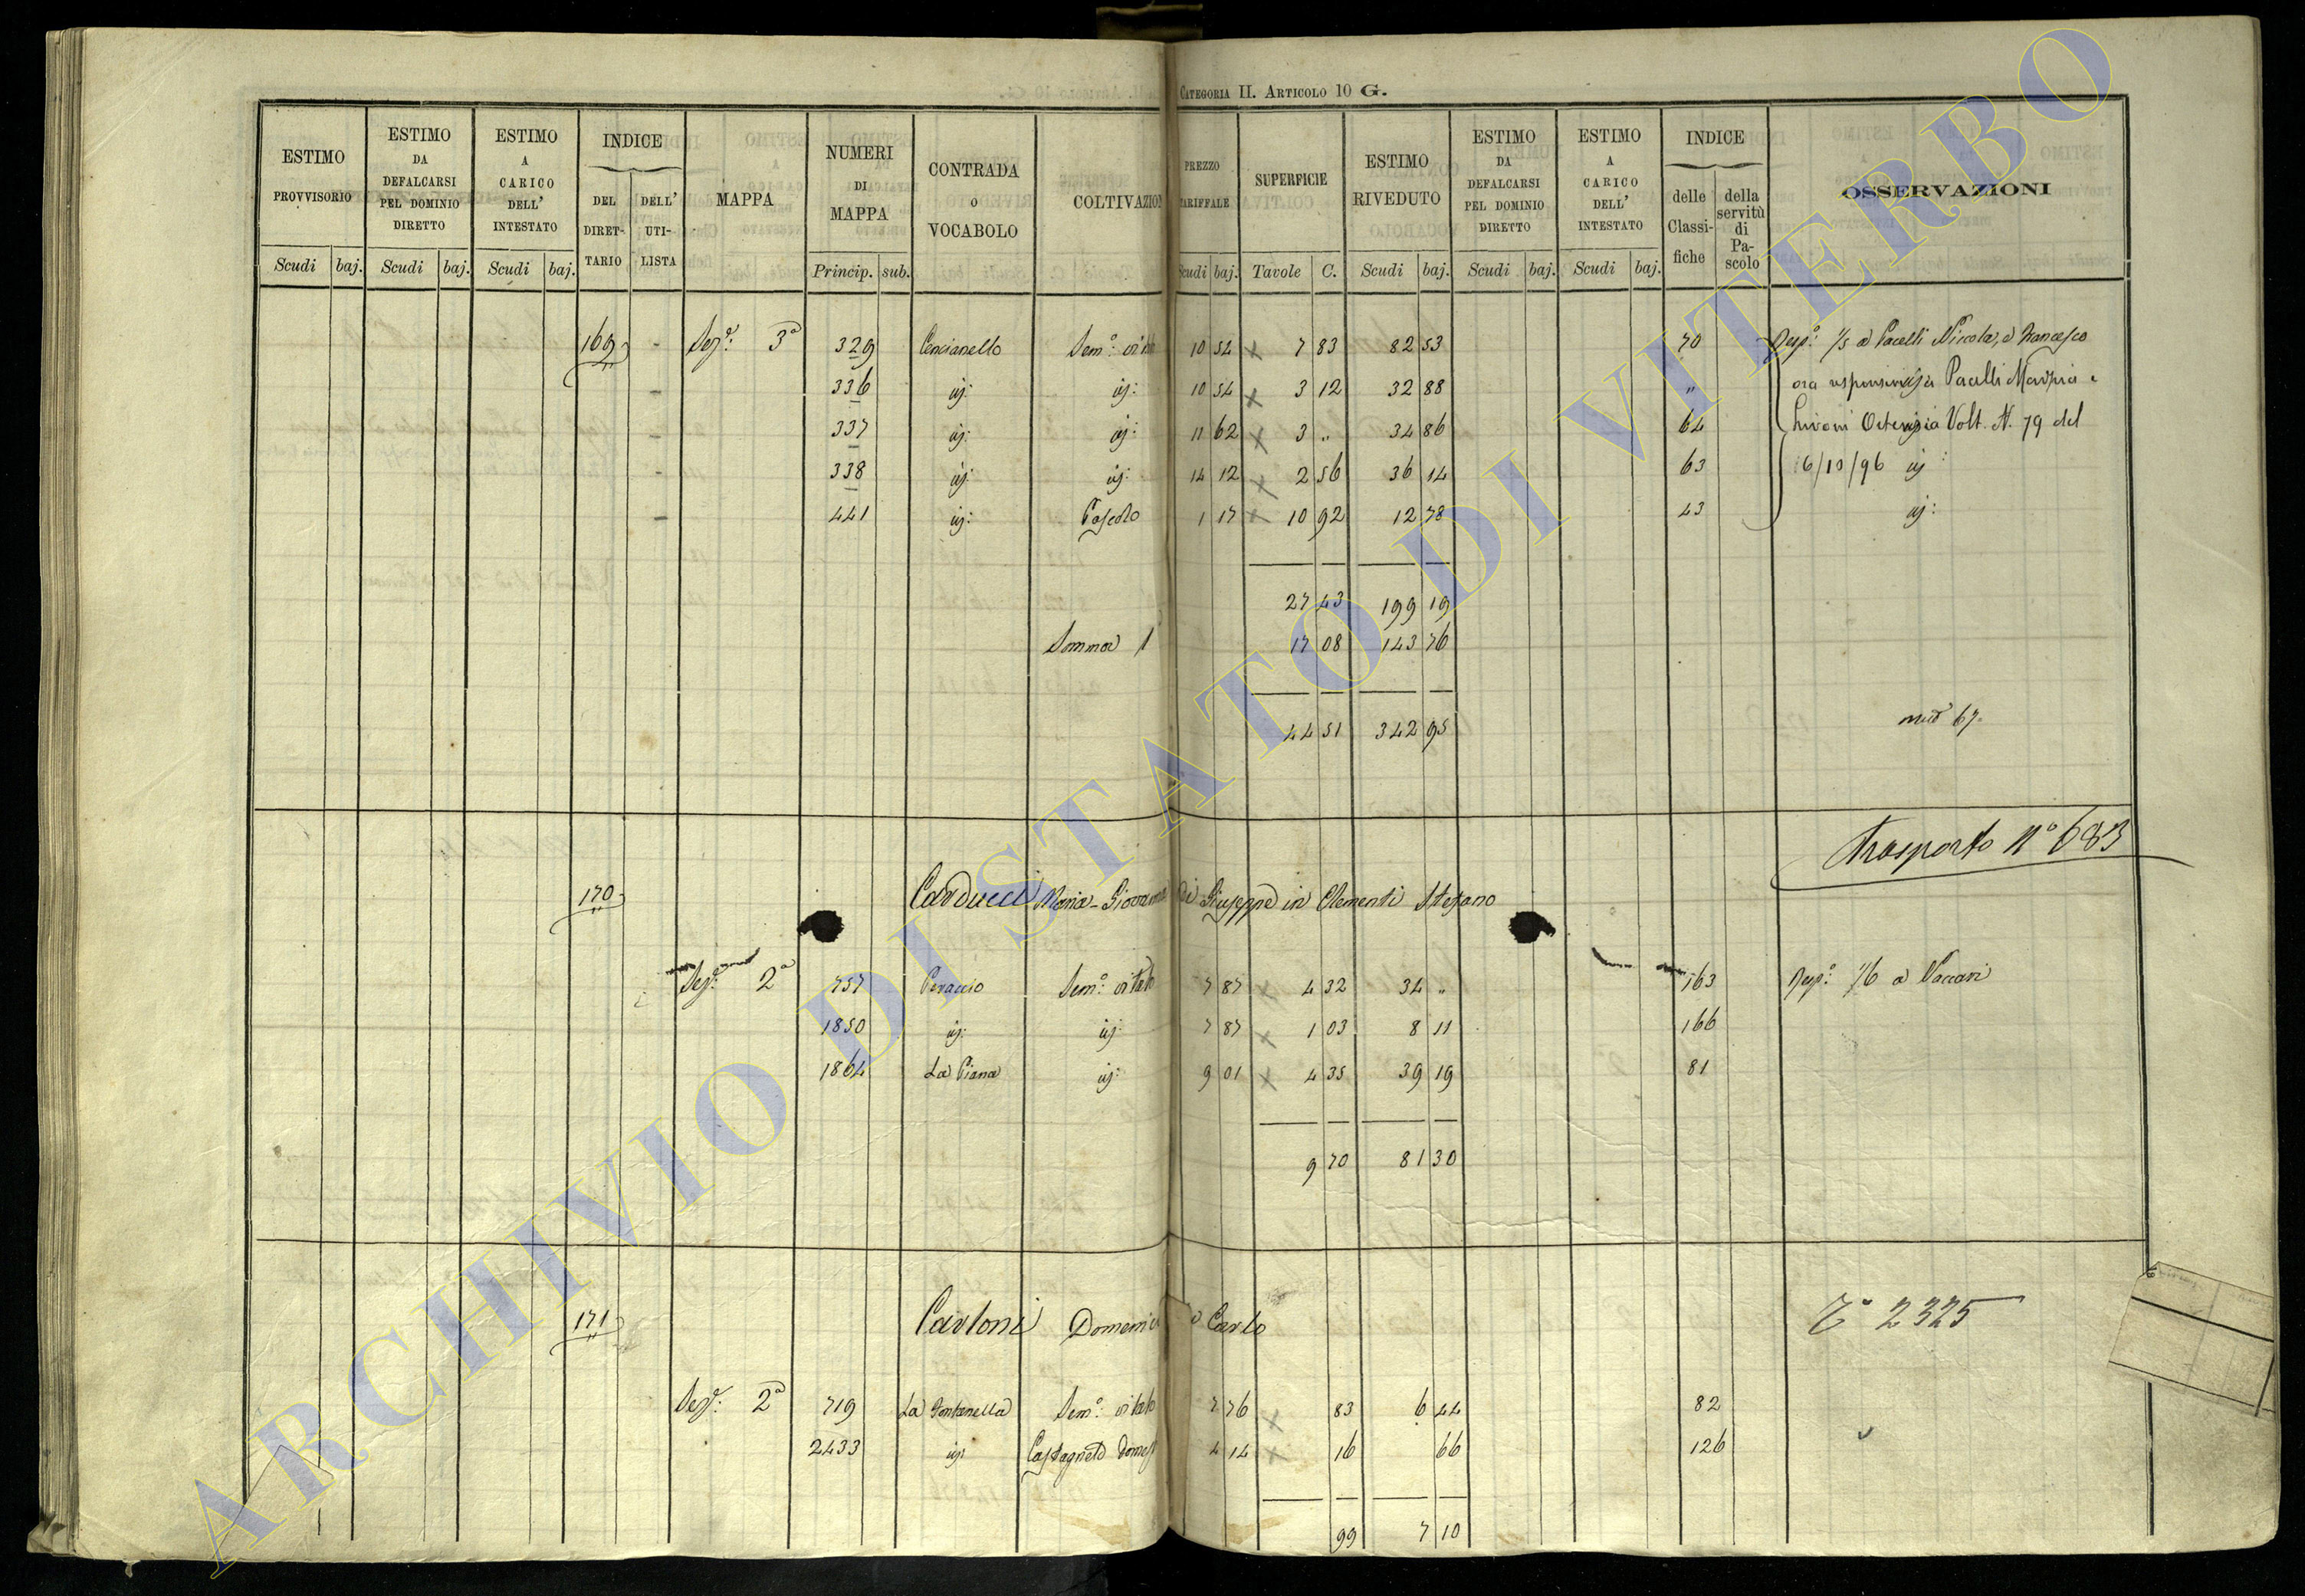 CATEGORIA II. ARTICOLO 10 G.
ESTIMO PROVVISORIO Scudi baj.
ESTIMO DA DEFALCARSI PEL DOMINIO DIRETTO Scudi baj.
ESTIMO A CARICO DELL' INTESTATO Scudi baj.
INDICE DEL DIRET-TARIO DELL' UTI-LISTA
MAPPA
NUMERI DI MAPPA Princip. sub.
CONTRADA O VOCABOLO
COLTIVAZION
PREZZO TARIFFALE Scudi baj.
SUPERFICIE Tavole C.
ESTIMO RIVEDUTO Scudi baj.
ESTIMO DA DEFALCARSI PEL DOMINIO DIRETTO Scudi baj.
ESTIMO A CARICO DELL' INTESTATO Scudi baj.
INDICE delle Classi-fiche della servitù di Pa-scolo
OSSERVAZIONI
169 - Sez.e 3a 329 Cencianello Sem.o vitato 10 54 7 83 82 53 70 Resp.o 1/5 a Pacelli Nicola, e Francesco
- 336 id: id: 10 54 3 12 32 88 " ora Pacelli e
- 337 id: id: 11 62 3 " 34 86 64 Ortensia Volt. N. 79 del
- 338 id: id: 14 12 2 56 36 14 63 16/10/96 id:
- 441 id: Pascolo 1 17 10 92 12 78 43 id:
27 43 199 19
Somma 17 08 143 76
44 51 342 95
67
Trasporto No 683
170 Carducci Maria-Giovanna di Giuseppe in Clementi Stefano
Sez.e 2a 757 Peraccio Sem.o vitato 7 87 4 32 34 " 163 Resp.o 1/6 a Vaccari
1850 id: id: 7 87 1 03 8 11 166
1864 La Piana id: 9 01 4 35 39 19 81
9 70 81 30
171 Carloni Domenico Carlo
To 2325
Sez.e 2a 719 La Fontanella Sem.o vitato 7 76 83 6 44 82
2433 id: Castagneto Domest 4 14 16 66 126
99 7 10
ARCHIVIO DI STATO DI VITERBO